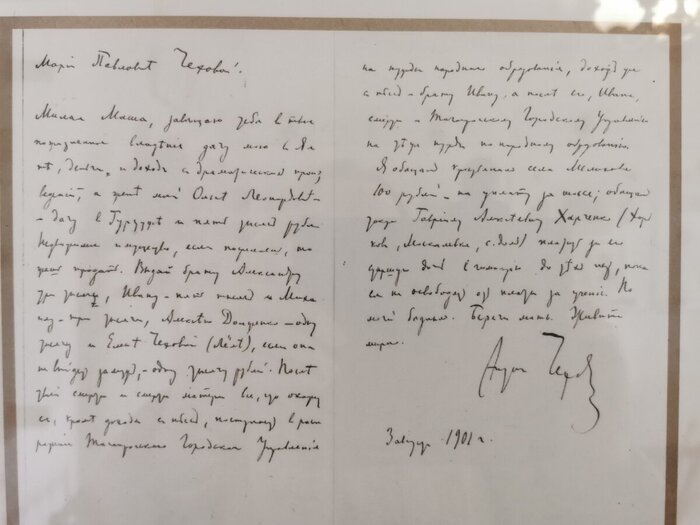 Маріи Павловнѣ Чеховой.
Милая Маша, завѣщаю тебѣ в твое
пожизненное владѣніе дачу мою в Ял
тѣ, деньги и доход с драматических произ
веденій, а женѣ моей Ольгѣ Леонардовнѣ-
- дачу в Гурзуфѣ и пять тысяч рублей.
Недвижимое имущество, если пожелаешь, мо
жешь продать. Выдай брату Александру
три тысячи, Ивану - пять тысяч и Миха
илу - три тысячи, Алексѣю Долженко - одну
тысячу и Еленѣ Чеховой (Лёлѣ), если она
не выйдет замуж, - одну тысячу рублей. Послѣ
твоей смерти и смерти матери все, что окажет
ся, кромѣ дохода с пьес, поступает в распо
ряженіе Таганрогского Городского Управленія
на нужды народного образованія, доход же
с пьес - брату Ивану, а послѣ его, Ивана,
смерти - Таганрогскому Городскому Управленію
на тѣ же нужды по народному образованію.
Я обещал крестьянам села Мелихова
100 рублей - на уплату за шоссе; обещал
также Гавріилу Алексѣевичу Харченко (Харь
ков, Москалевка, с. дом) платить за его
старшую дочь в гимназію до тѣх пор, пока
ея не освободят от платы за ученіе. По
могай бѣдным. Береги мать. Живите
мирно.
Антон Чехов
3 август 1901 г.